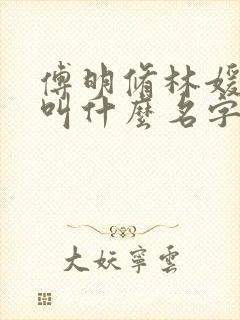 傅明脩林媛
叫什麼名字
大妖寧雲